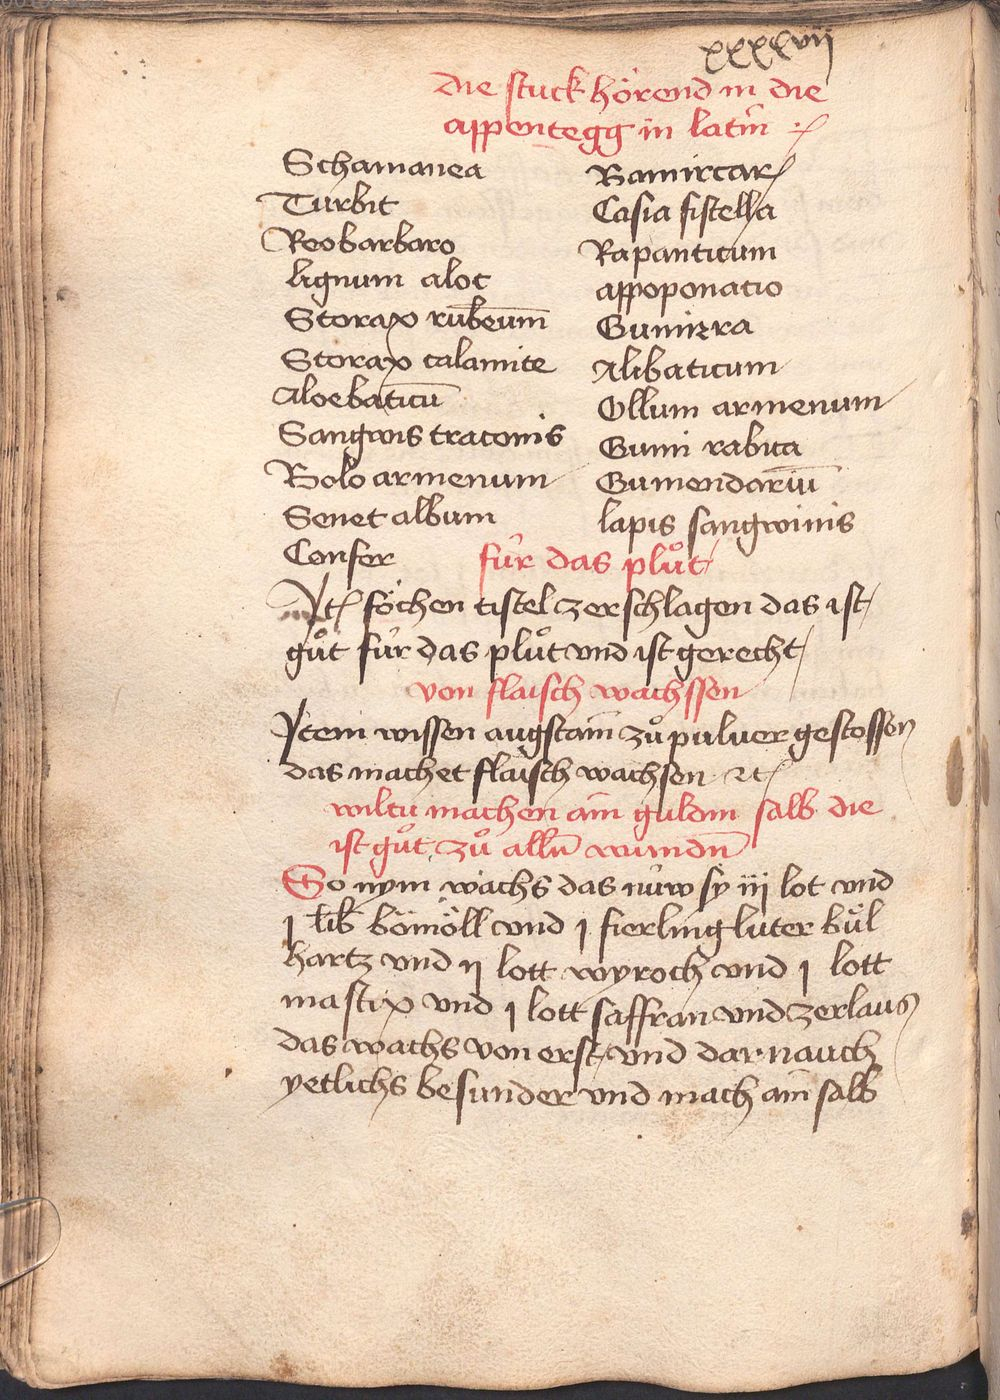 xxxxvii
die stuck hörend in die
appentegg in latin
Schamanea
Turbit
Reobarbaro
lignum aloc
Storax rubeum̄
Storax calamite
Aloebaticū
Sangwis traconis
Bolo armenum
Senet album
Confor
Bamircar
Casia fistella
Rapanticum
appoponacio
Gumirra
Alibaticum
Ollum armenum
Gumi rabita
Gumendariū
lapis sangwinis
für das plůt
It föchen tistel zerschlagen das ist
gůt für das plůt vnd ist gerecht
von flaisch wachssen
Ytem wissen augstain zů puluer gestossen
das machet flaisch wachsen
wiltu machen ain guldin salb die
ist gůt zů alln̄ wundn̄
So nym wachs das nüw sy iij lot vnd
j lib bömöll vnd j fierling luter bül
hartz vnd ij lott wyroch vnd j lott
mastix vnd j lott saffran vnd zerlaus
das wachs von erst vnd darnauch
yetlichs besunder vnd mach ain salb